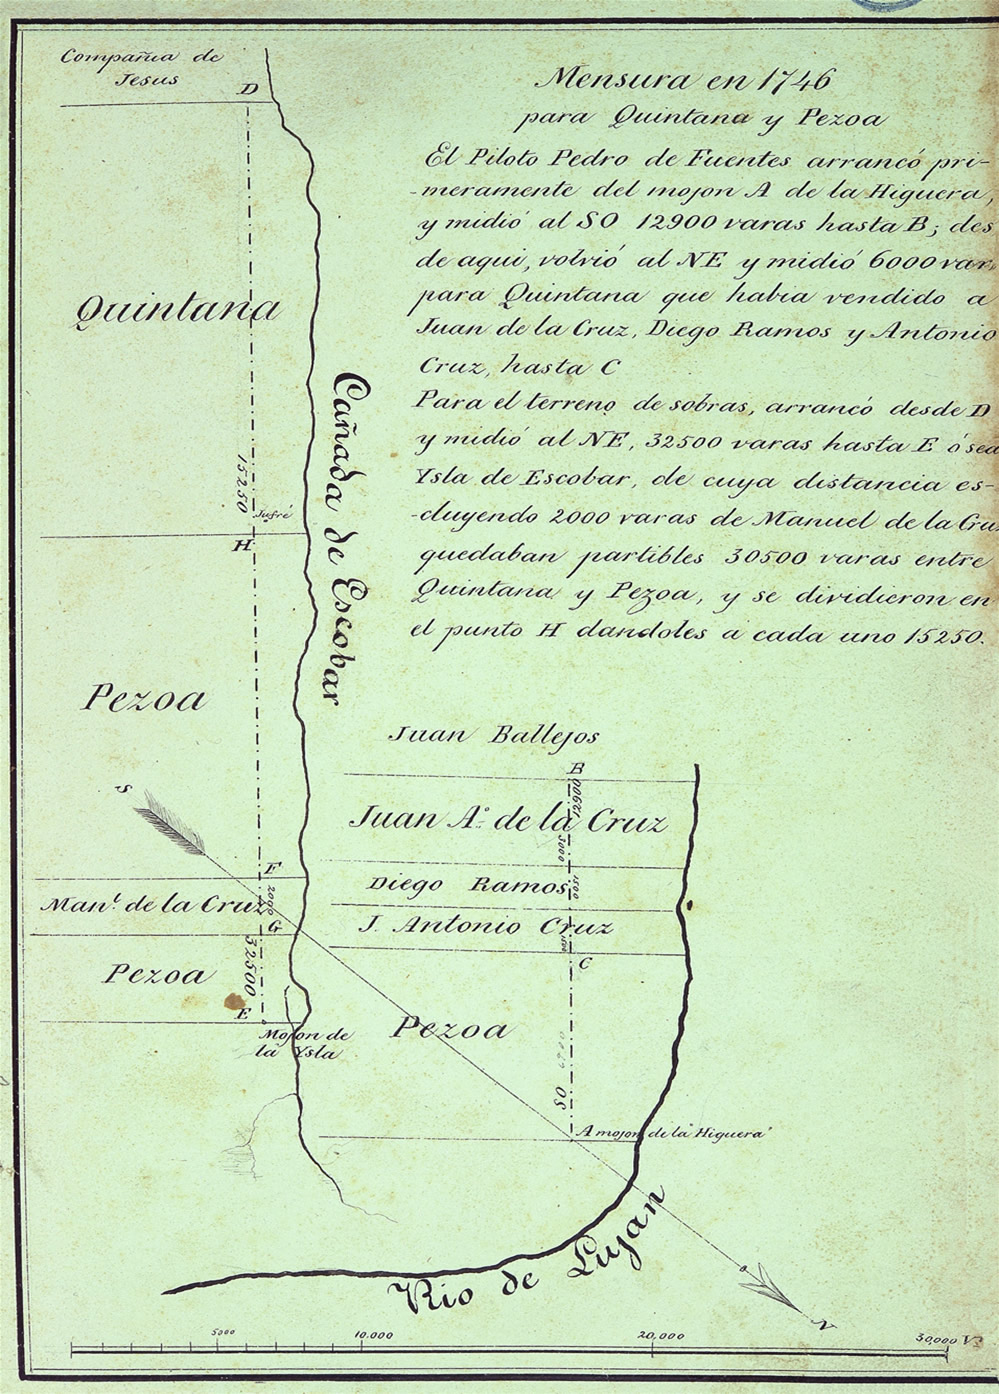 Compañia de
Jesus
D
Mensura en 1746
para Quintana y Pezoa
El Piloto Pedro de Fuentes arrancó pri-
-meramente del mojon A de la Higuera,
y midió al SO 12900 varas hasta B; des
de aqui, volvió al NE y midió 6000 var
para Quintana que habia vendido a
Juan de la Cruz, Diego Ramos y Antonio
Cruz, hasta C
Para el terreno de sobras, arrancó desde D
y midió al NE, 32500 varas hasta E ó sea
Ysla de Escobar, de cuya distancia es-
-cluyendo 2000 varas de Manuel de la Cru
quedaban partibles 30500 varas entre
Quintana y Pezoa, y se dividieron en
el punto H dandoles a cada uno 15250.
Quintana
Cañada de Escobar
15250
Jufré
H
Pezoa
S
Juan Ballejos
B
12900
Juan A.º de la Cruz
3000
F
Diego Ramos
1500
2000
Man.l de la Cruz
G
J. Antonio Cruz
1500
C
Pezoa
32500
E
Mojon de
la Ysla
Pezoa
SO
A mojon de la Higuera
Rio de Lujan
N
5000
10.000
20,000
30,000 V.s